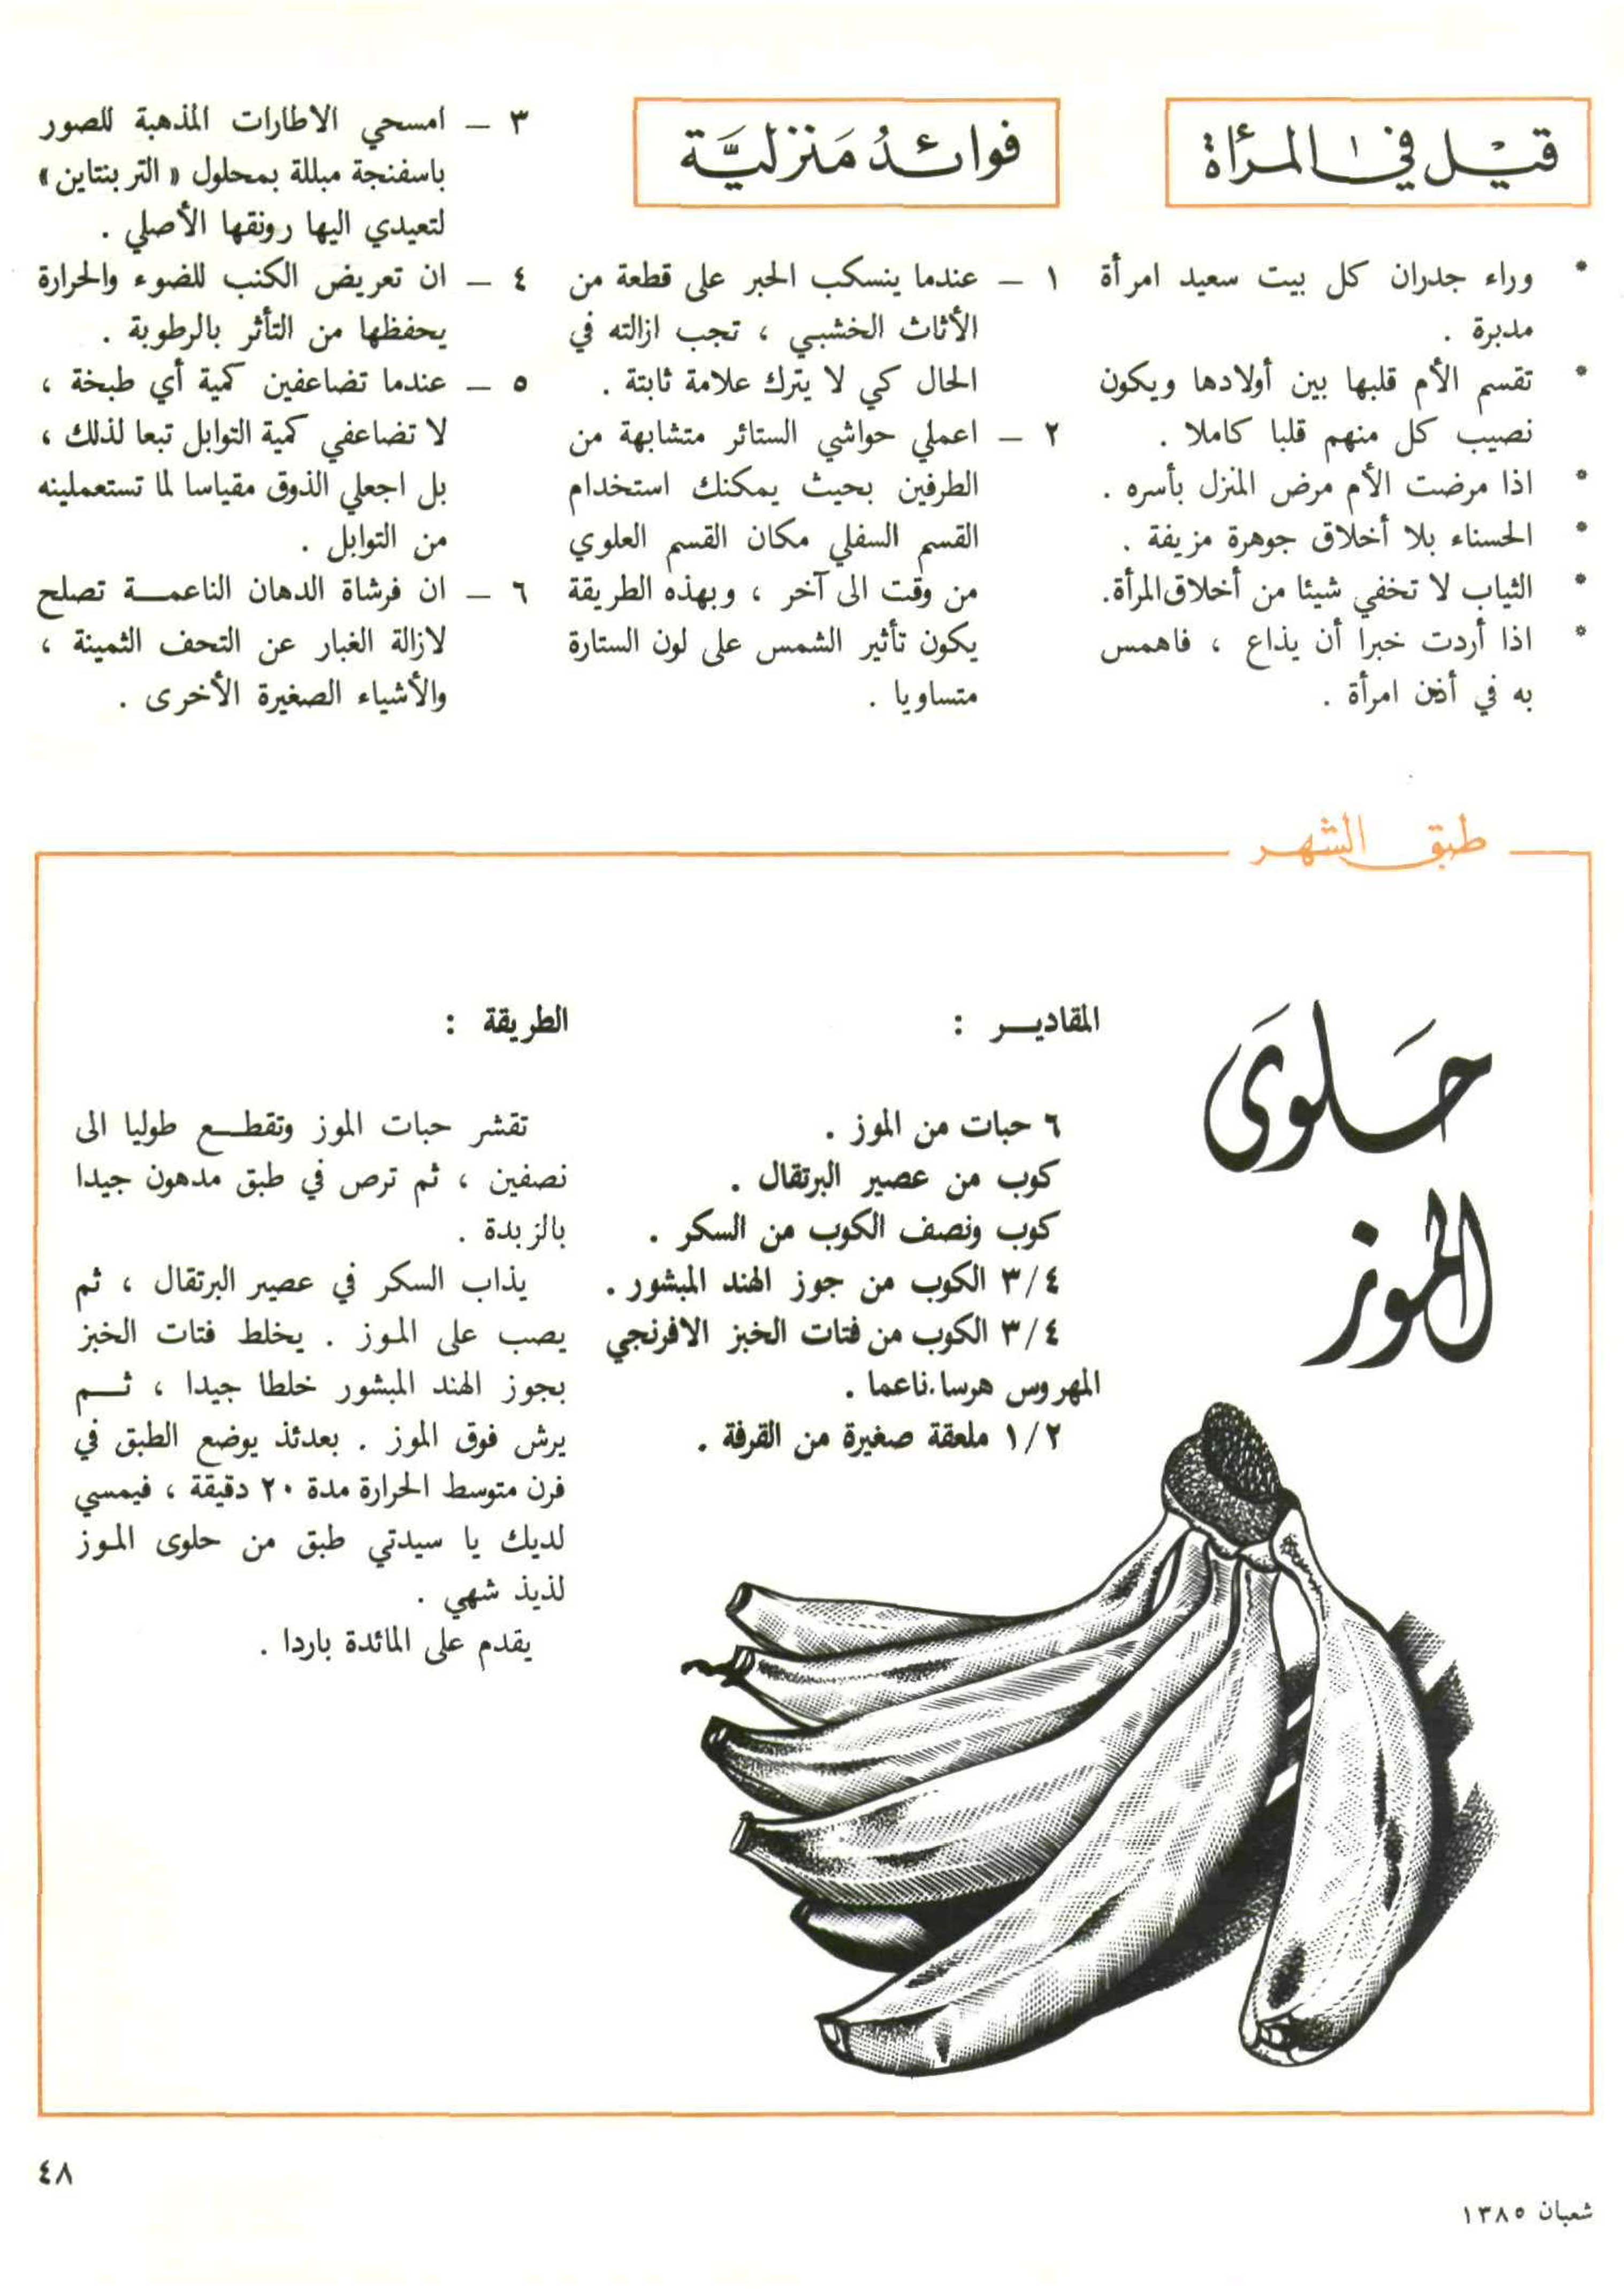 قيل في المرأة
* وراء جدران كل بيت سعيد امرأة
مدبرة .
* تقسم الأم قلبها بين أولادها ويكون
نصيب كل منهم قلبا كاملا .
* اذا مرضت الأم مرض المنزل بأسره .
* الحسناء بلا أخلاق جوهرة مزيفة .
* الثياب لا تخفي شيئا من أخلاق المرأة.
* اذا أردت خبرا أن يذاع ، فاهمس
به في أذن امرأة .
فوائد منزلية
١ – عندما ينسكب الحبر على قطعة من
الأثاث الخشبي ، تجب ازالته في
الحال كي لا يترك علامة ثابتة .
٢ – اعملي حواشي الستائر متشابهة من
الطرفين بحيث يمكنك استخدام
القسم السفلي مكان القسم العلوي
من وقت الى آخر ، وبهذه الطريقة
يكون تأثير الشمس على لون الستارة
متساويا .
٣ – امسحي الاطارات المذهبة للصور
باسفنجة مبللة بمحلول « التربنتاين »
لتعيدي اليها رونقها الأصلي .
٤ – ان تعريض الكنب للضوء والحرارة
يحفظها من التأثر بالرطوبة .
٥ – عندما تضاعفين كمية أي طبخة ،
لا تضاعفي كمية التوابل تبعا لذلك ،
بل اجعلي الذوق مقياسا لما تستعملينه
من التوابل .
٦ – ان فرشاة الدهان الناعمة تصلح
لازالة الغبار عن التحف الثمينة ،
والأشياء الصغيرة الأخرى .
طبق الشهر
حَلوَى
الموز
المقادير :
٦ حبات من الموز .
كوب من عصير البرتقال .
كوب ونصف الكوب من السكر .
٣/٤ الكوب من جوز الهند المبشور .
٣/٤ الكوب من فتات الخبز الافرنجي
المهروس هرسا ناعما .
١/٢ ملعقة صغيرة من القرفة .
الطريقة :
تقشر حبات الموز وتقطع طوليا الى
نصفين ، ثم ترص في طبق مدهون جيدا
بالزبدة .
يذاب السكر في عصير البرتقال ، ثم
يصب على الموز . يخلط فتات الخبز
بجوز الهند المبشور خلطا جيدا ، ثم
يرش فوق الموز . بعدئذ يوضع الطبق في
فرن متوسط الحرارة مدة ٢٠ دقيقة ، فيمسي
لديك يا سيدتي طبق من حلوى الموز
لذيذ شهي .
يقدم على المائدة باردا .
٤٨
شعبان ١٣٨٥